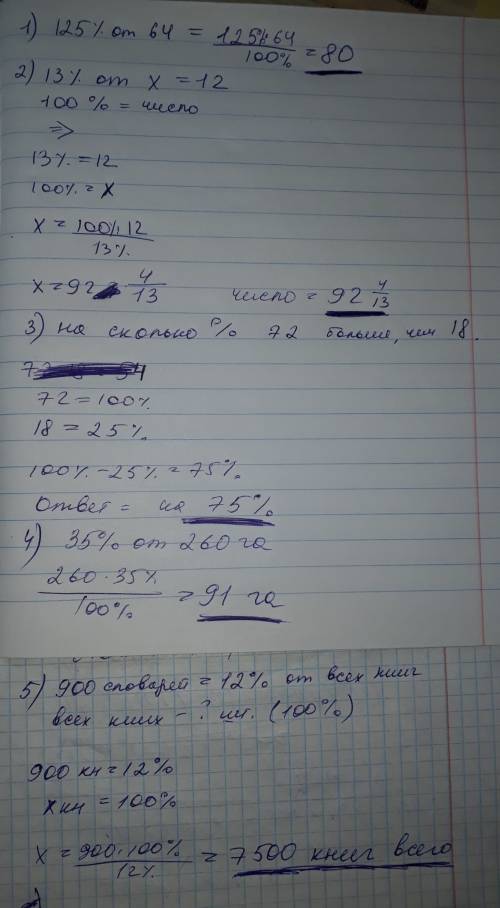 1) 125% от 64 = 125%·64 / 100% = 80
2) 13% от х = 12
100% = число
⇒
13% = 12
100% = х
х = 100%·12 / 13%
х = 92 4/13 число = 92 4/13
3) на сколько % 72 больше, чем 18.
72 = 100%
18 = 25%
100% - 25% = 75%
Ответ = на 75%
4) 35% от 260 га
260·35% / 100% = 91 га
5) 900 словарей = 12% от всех книг
всех книг - ? шт. (100%)
900 кн = 12%
х кн = 100%
х = 900·100% / 12% = 7500 книг всего